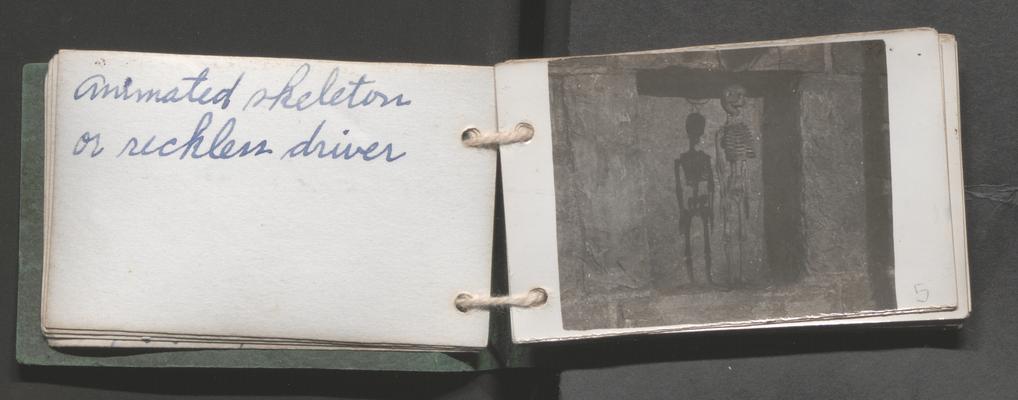 animated skeleton
or reckless driver
5